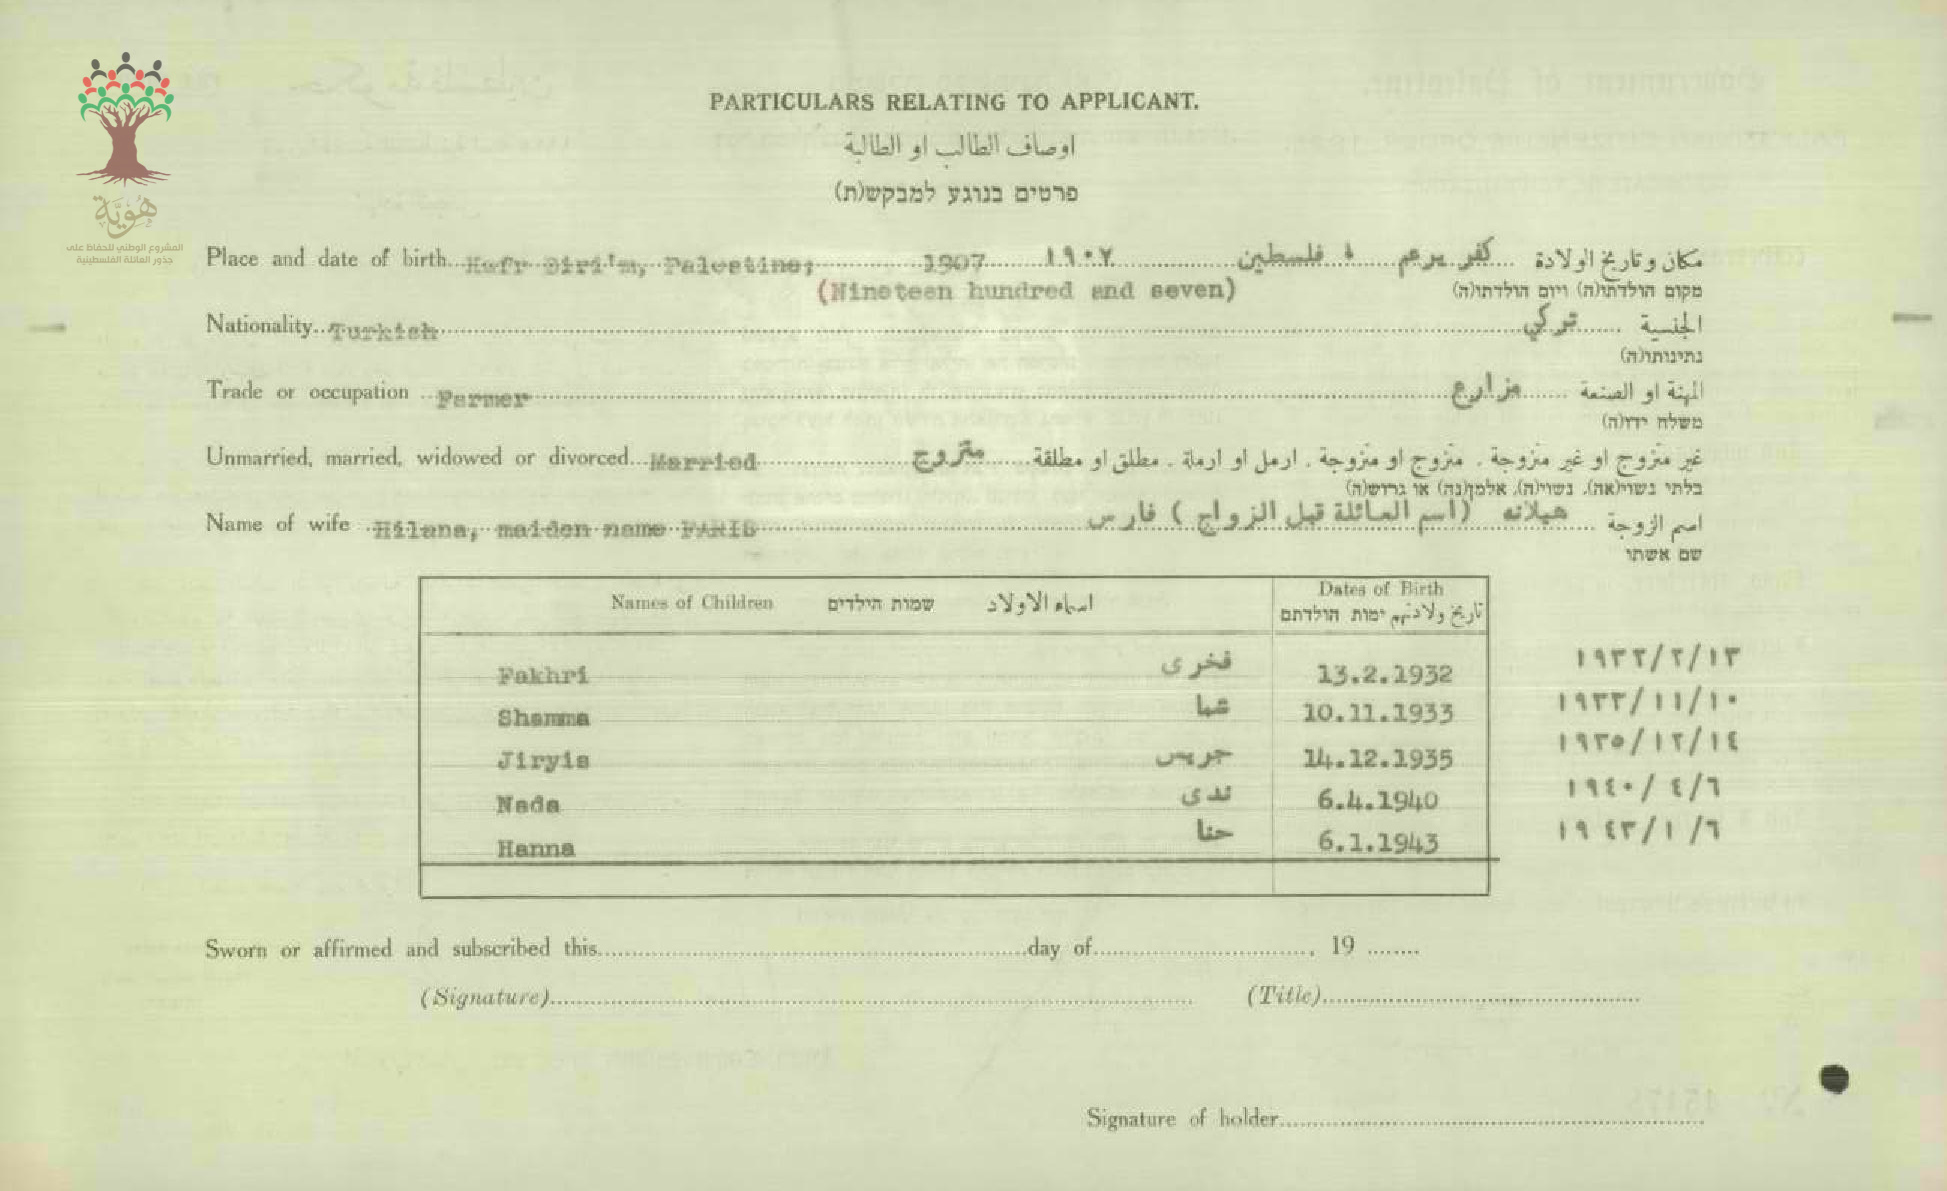 هُوِيَّة
المشروع الوطني للحفاظ على
جذور العائلة الفلسطينية
PARTICULARS RELATING TO APPLICANT.
اوصاف الطالب او الطالبة
פרטים בנוגע למבקש(ת)
Place and date of birth Kefr Biri'm, Palestine; 1907 ١٩٠٧ كفر برعم ، فلسطين مكان وتاريخ الولادة
(Nineteen hundred and seven) מקום הולדתו(ה) ויום הולדתו(ה)
Nationality Turkish تركي الجنسية
נתינותו(ה)
Trade or occupation Farmer مزارع المهنة او الصنعة
משלח ידו(ה)
Unmarried, married, widowed or divorced Married متزوج غير متزوج او غير متزوجة . متزوج او متزوجة . ارمل او ارملة . مطلق او مطلقة
בלתי נשוי(אה), נשוי(ה), אלמן(נה) או גרוש(ה)
Name of wife Hilana, maiden name FARIS هيلانه (اسم العائلة قبل الزواج ) فارس اسم الزوجة
שם אשתו
Names of Children שמות הילדים اسماء الاولاد Dates of Birth
تاريخ ولادتهم ימות הולדתם
Fakhri فخرى 13.2.1932 ١٩٣٢/٢/١٣
Shamma شما 10.11.1933 ١٩٣٣/١١/١٠
Jiryis جريس 14.12.1935 ١٩٣٥/١٢/١٤
Nada ندى 6.4.1940 ١٩٤٠/٤/٦
Hanna حنا 6.1.1943 ١٩٤٣/١/٦
Sworn or affirmed and subscribed this day of , 19
(Signature) (Title)
Signature of holder